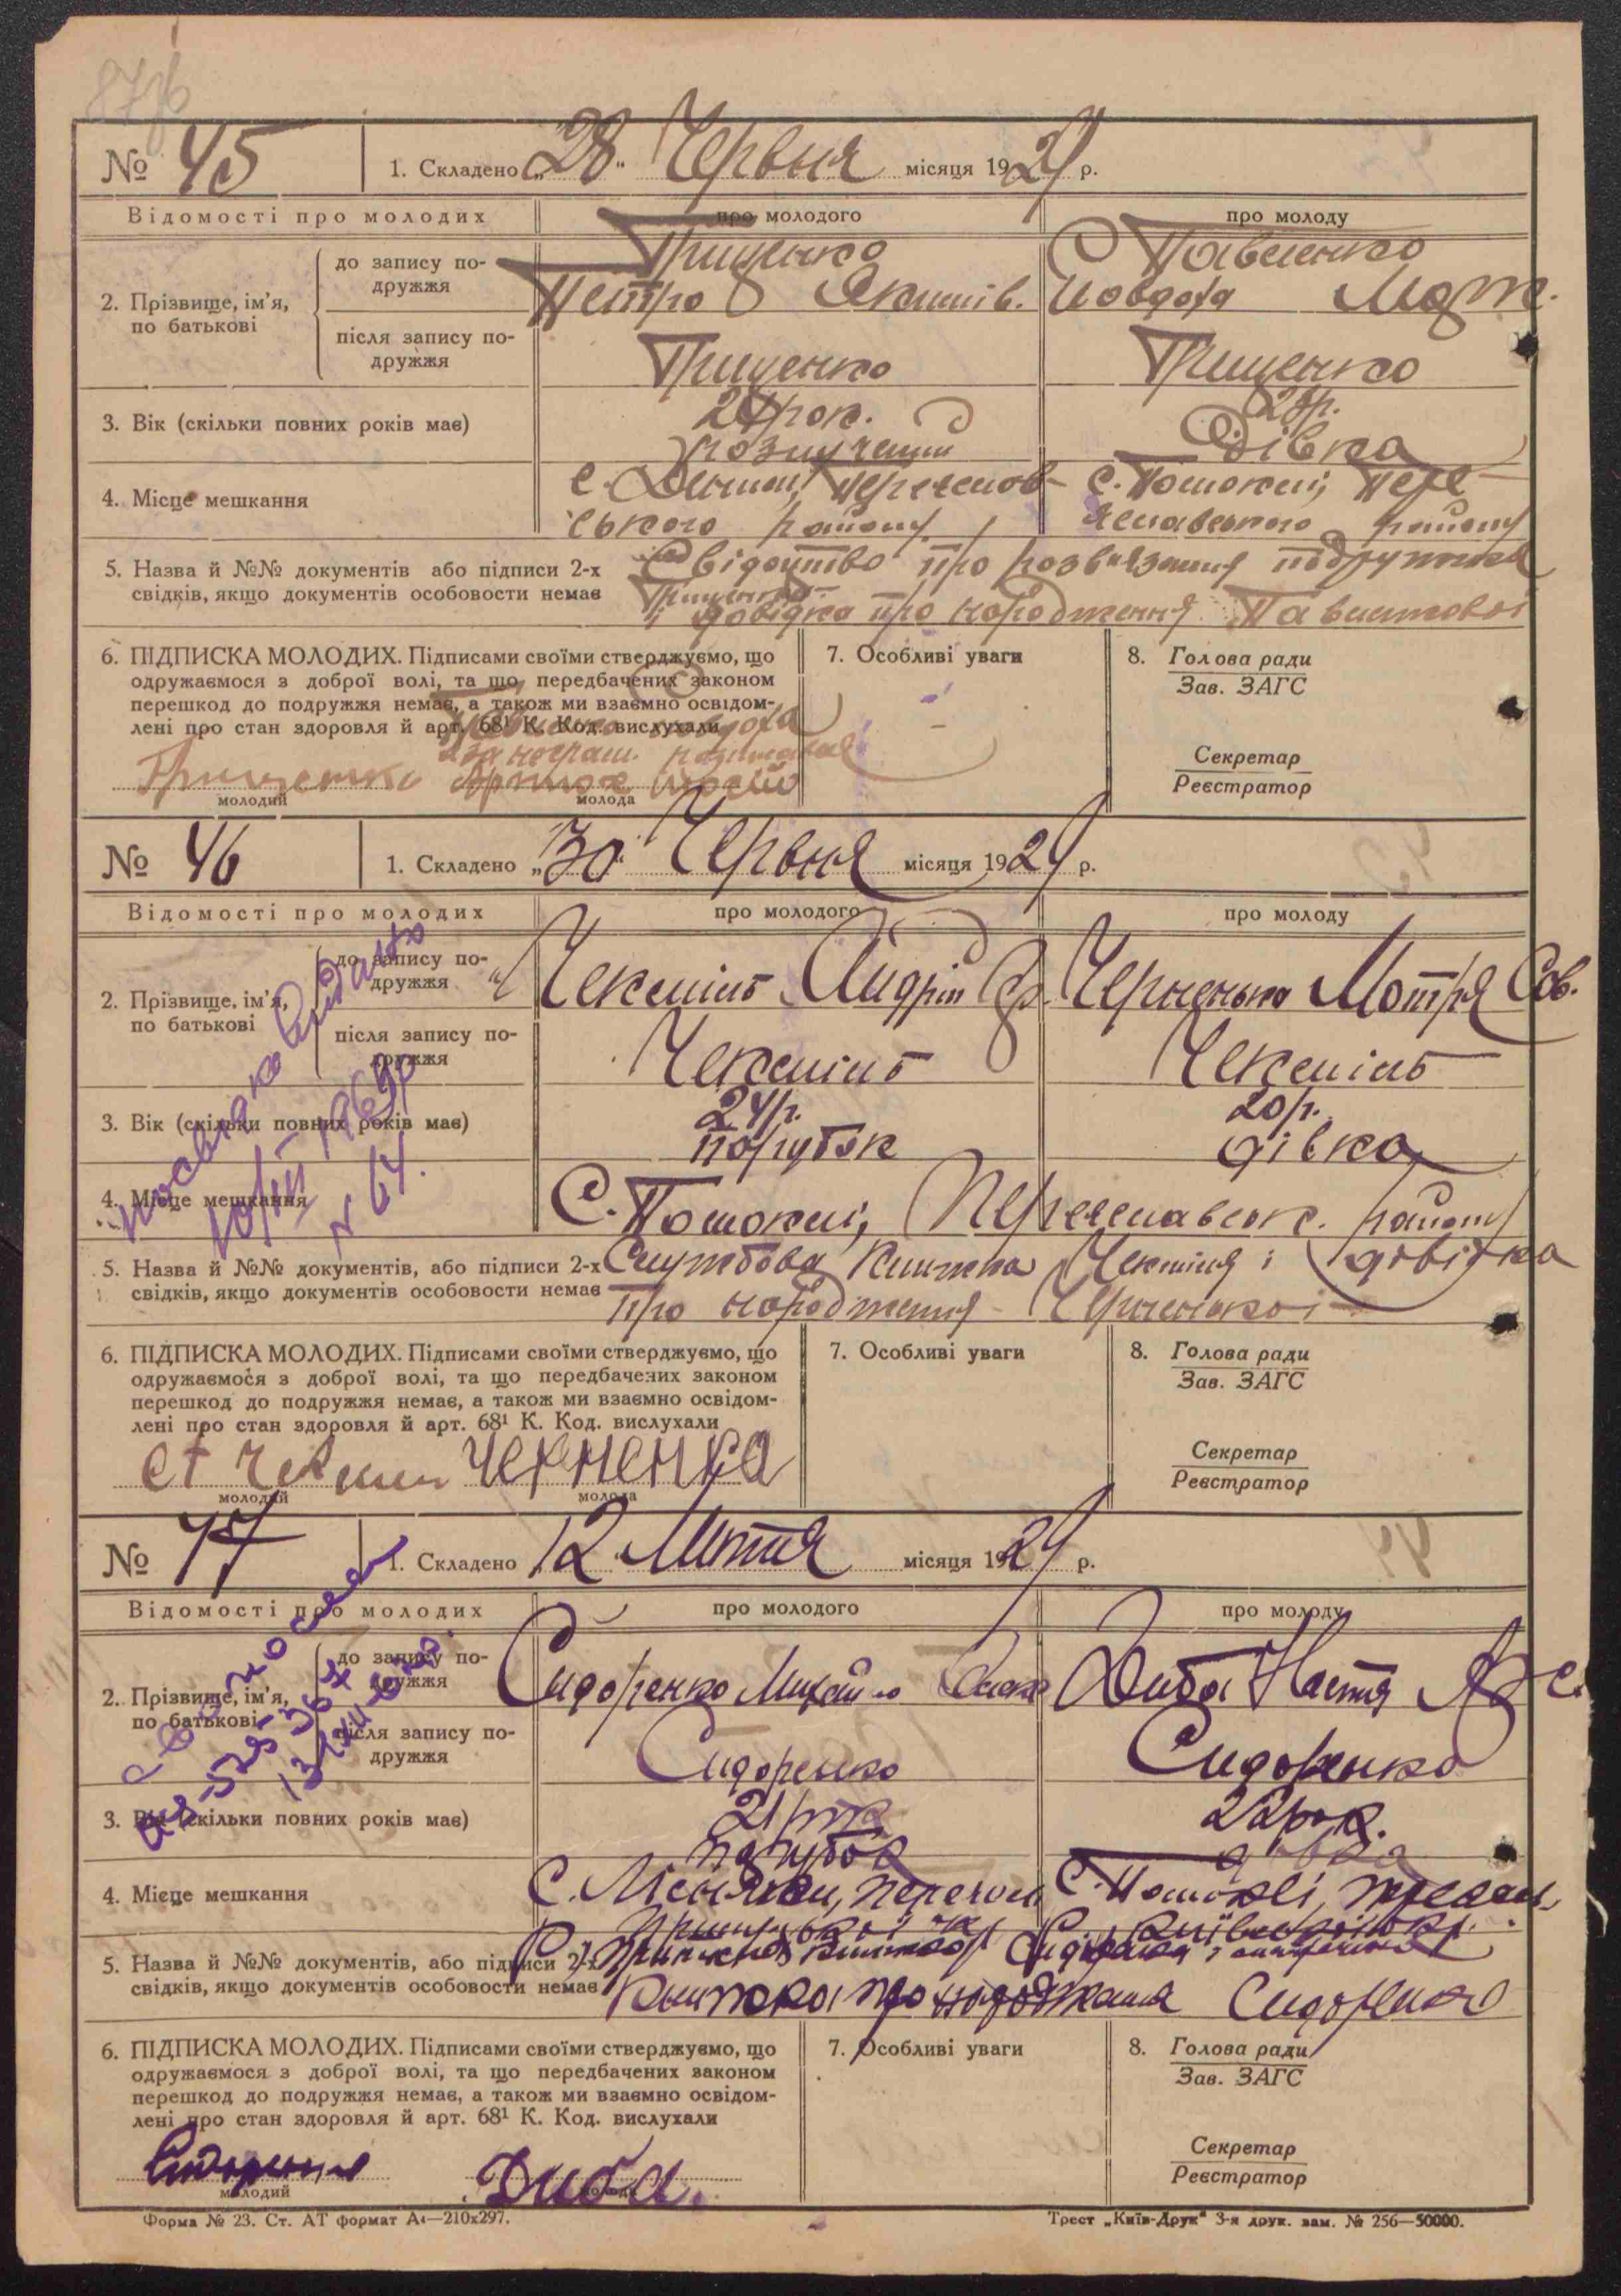 87зв
№ 45 1. Складено „28" Червня місяця 1929 р.
Відомості про молодих про молодого про молоду
2. Прізвище, ім'я, по батькові
до запису подружжя
Грищенко Павленко
Петро Якимів. Мовдоха
після запису подружжя
Грищенко Грищенко
3. Вік (скільки повних років має)
рок. р.
розлучений Дівка
4. Місце мешкання
с. Переяслав- с. Помоклі, Пере-
ського району яславського району
5. Назва й №№ документів або підписи 2-х
Свідоцтво про розв'язання подружжя
свідків, якщо документів особовости немає
Грищенка
і довідка про народження Павленкової
6. ПІДПИСКА МОЛОДИХ. Підписами своїми стверджуємо, що
одружаємося з доброї волі, та що передбачених законом
перешкод до подружжя немає, а також ми взаємно освідом-
лені про стан здоровля й арт. 68¹ К. Код. вислухали
7. Особливі уваги
8. Голова ради
Зав. ЗАГС
Секретар
Реєстратор
за неграм. розписався
Грищенко
молодий молода
№ 46 1. Складено „30" Червня місяця 1929 р.
Відомості про молодих про молодого про молоду
2. Прізвище, ім'я, по батькові
до запису подружжя
Чекмінь Андрій Чорненька Мотря Сав.
після запису подружжя
Чекмінь Чекмінь
3. Вік (скільки повних років має)
24р. 20р.
парубок дівка
10/III 1969р
№ 64.
4. Місце мешкання
С. Помоклі, Переяславськ. району
5. Назва й №№ документів, або підписи 2-х
Службова Книжка Чекміня і довідка
свідків, якщо документів особовости немає
про народження Чорненької
6. ПІДПИСКА МОЛОДИХ. Підписами своїми стверджуємо, що
одружаємося з доброї волі, та що передбачених законом
перешкод до подружжя немає, а також ми взаємно освідом-
лені про стан здоровля й арт. 68¹ К. Код. вислухали
7. Особливі уваги
8. Голова ради
Зав. ЗАГС
Секретар
Реєстратор
Черненка
молодий молода
№ 47 1. Складено 12 Липня місяця 1929 р.
Відомості про молодих про молодого про молоду
2. Прізвище, ім'я, по батькові
до запису подружжя
Сидоренко Михайло Диба Настя
після запису подружжя
Сидоренко Сидоренко
3. Вік (скільки повних років має)
21 рок 22 рок.
парубок дівка
4. Місце мешкання
С. С. Помоклі,
5. Назва й №№ документів, або підписи 2-х
свідків, якщо документів особовости немає
Книжка про народження Сидоренко
6. ПІДПИСКА МОЛОДИХ. Підписами своїми стверджуємо, що
одружаємося з доброї волі, та що передбачених законом
перешкод до подружжя немає, а також ми взаємно освідом-
лені про стан здоровля й арт. 68¹ К. Код. вислухали
7. Особливі уваги
8. Голова ради
Зав. ЗАГС
Секретар
Реєстратор
Диба.
молодий молода
Форма № 23. Ст. АТ формат А4—210х297.
Трест „Київ-Друк" 3-я друк. зам. № 256—50000.